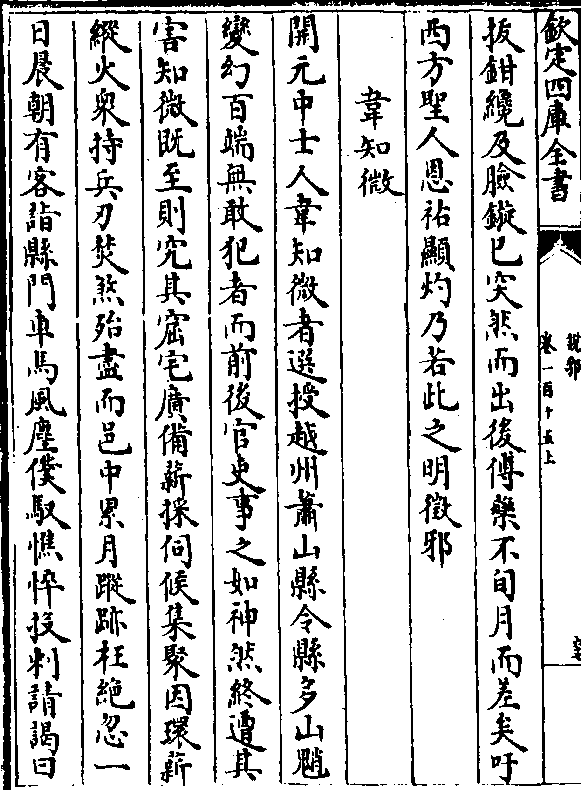 欽定四庫全書
說郛
卷一百十五上
扳鉗纔及臉鏃已突然而出後傅藥不旬月而差矣吁
西方聖人恩祐顯灼乃若此之明徵邪
韋知微
開元中士人韋知微者選授越州蕭山縣令縣多山魈
變幻百端無敢犯者而前後官吏事之如神然終遭其
害知微既至則究其窟宅廣備薪採伺候集聚因環薪
縱火衆持兵刃焚煞殆盡而邑中累月蹤跡杜絶忽一
日晨朝有客詣縣門車馬風塵僕馭憔悴投刺請謁曰